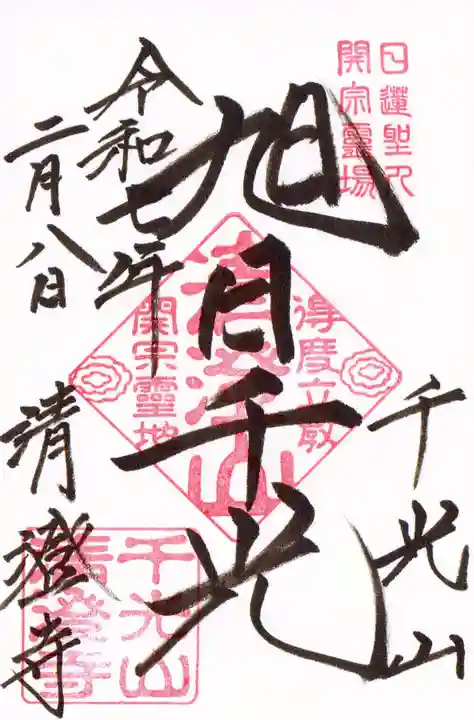 日蓮聖人
開宗霊場
千光山
旭日千光
得度立教
清澄山
開宗霊地
令和七年
二月八日
清澄寺
千光山
清澄寺